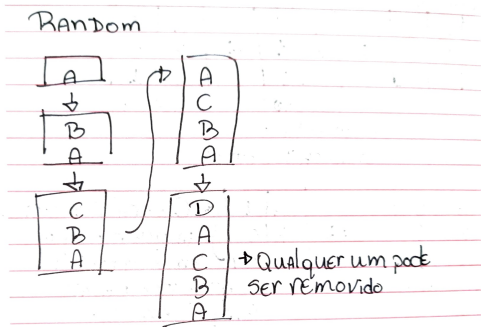 RANDOM
A
B
A
C
B
A
A
C
B
A
D
A
C
B
A
→ QUALQUER UM PODE
SER REMOVIDO